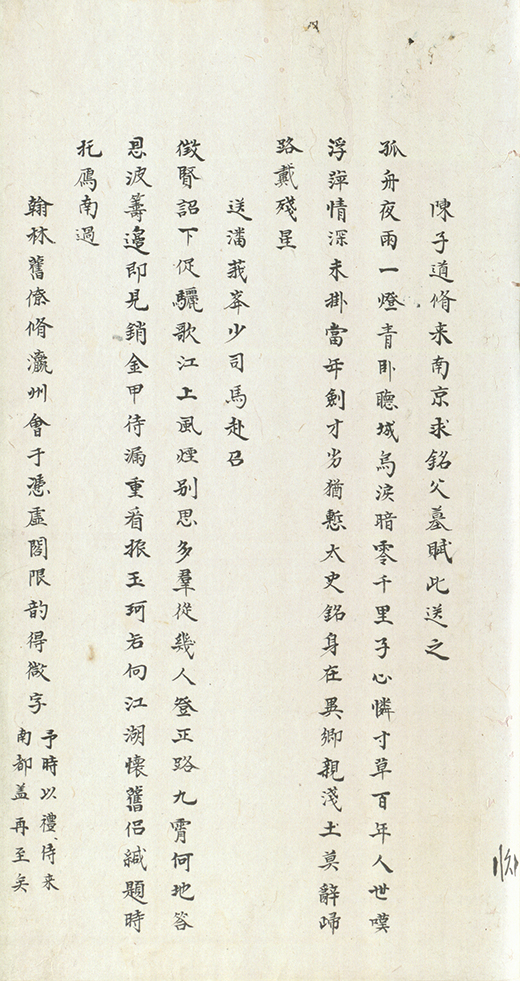 陳子道脩来南京求銘父墓賦此送之
孤舟夜雨一燈青卧聽城烏淚暗零千里子心憐寸草百年人世嘆
浮萍情深未掛當年劍才劣猶慙太史銘身在異鄉親淺土莫辭歸
路戴殘星
送潘莪峯少司馬赴召
徵賢詔下促驪歌江上風煙别思多羣從幾人登正路九霄何地答
恩波籌邉即見銷金甲待漏重看振玉珂若向江湖懷舊侣緘題時
托鴈南過
翰林舊僚脩瀛州會于憑虚閣限韵得微字
予時以禮侍来
南都盖再至矣